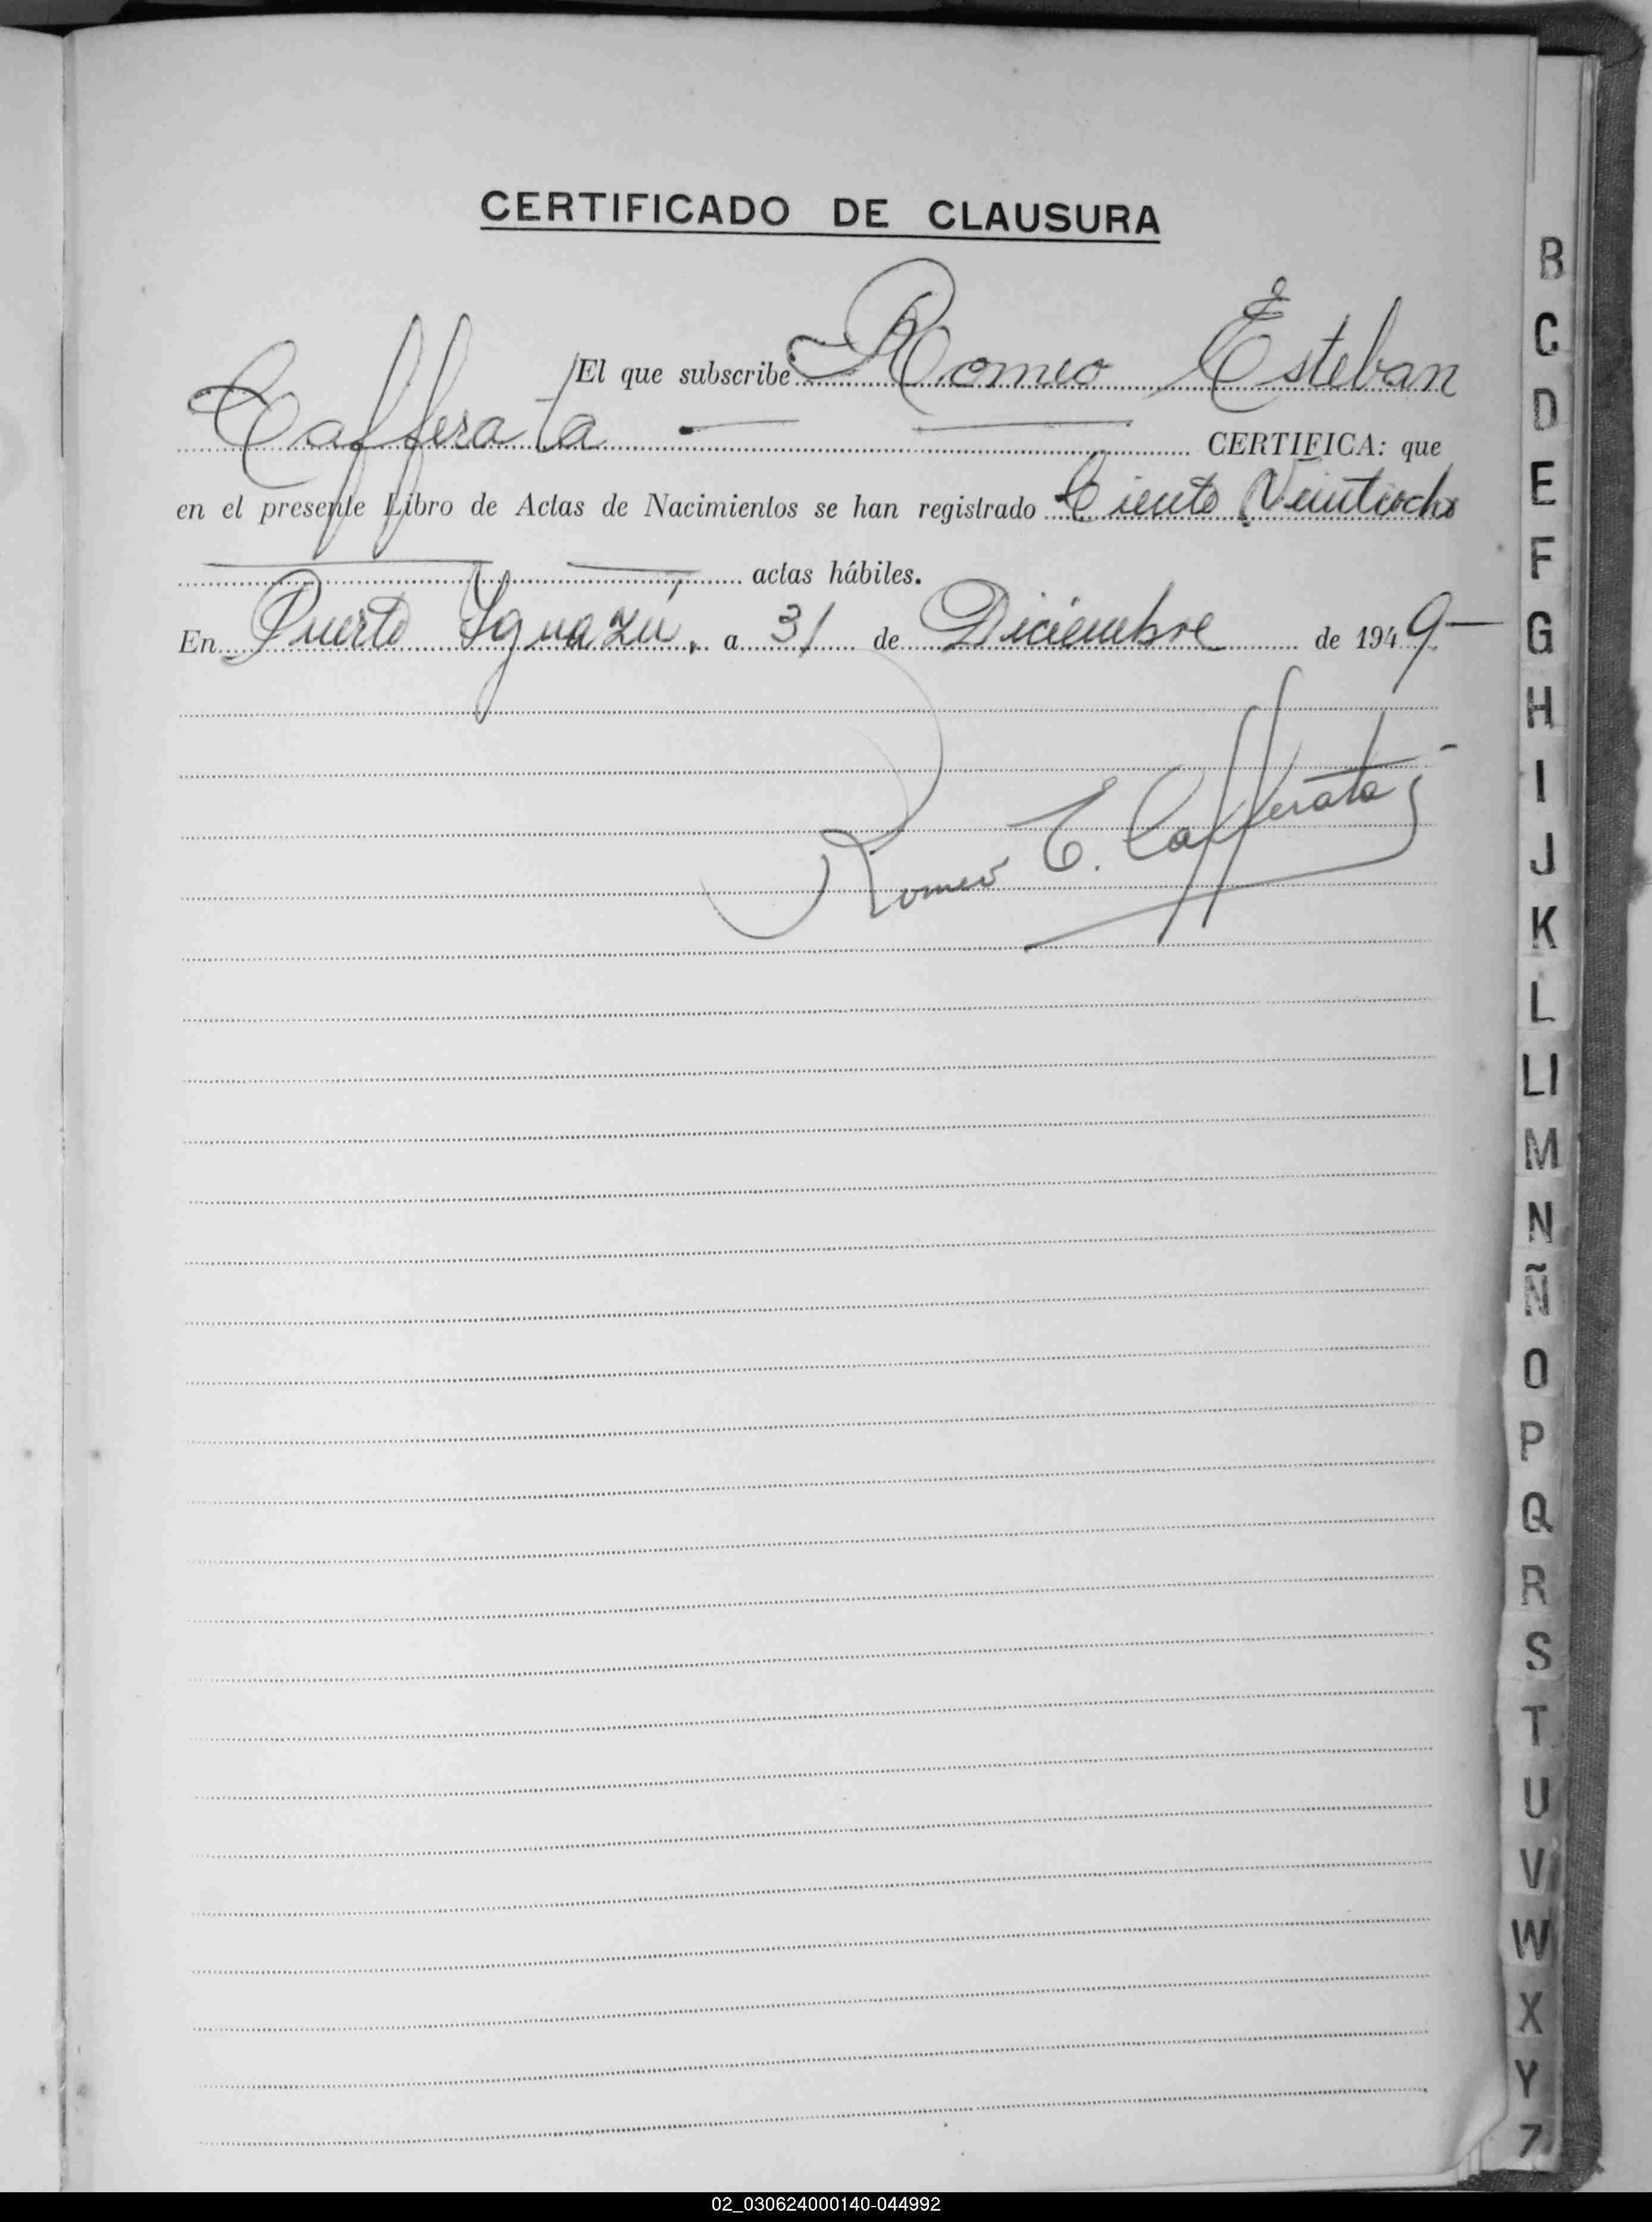 CERTIFICADO DE CLAUSURA
El que subscribe Romeo Esteban
Cafferata — — CERTIFICA: que
en el presente Libro de Actas de Nacimientos se han registrado Ciento Veintiocho
— — actas hábiles.
En Puerto Yguazú, a 31 de Diciembre de 1949—
Romeo E. Cafferata
B
C
D
E
F
G
H
I
J
K
L
Ll
M
N
Ñ
O
P
Q
R
S
T
U
V
W
X
Y
Z
02_030624000140-044992